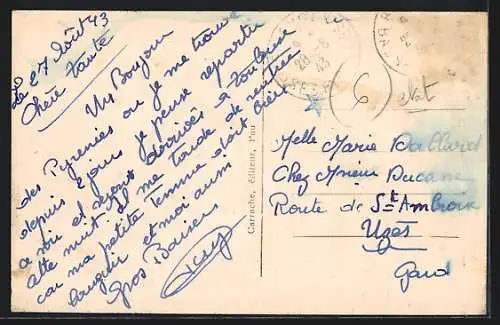 Le 27 Août 43
Chère Tante
Un Bonjour
des Pyrénées ou je me trouve
depuis 2 jours je pense repartir
ce soir et nous arrivés a Toulouse
cette nuit il me tarde de rentrer
car ma petite femme doit bien
languir et moi aussi
Gros Baisers
Carrache, éditeur, Pau
28-8
43
6
Melle Marie
Chez Ducane
Route de St Ambroix
Uzès
Gard